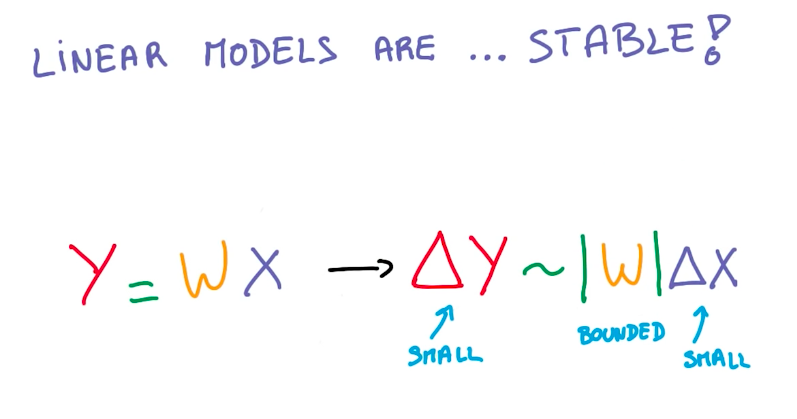 LINEAR MODELS ARE ... STABLE!
Y = W X → ΔY ~ |W| ΔX
SMALL
BOUNDED
SMALL